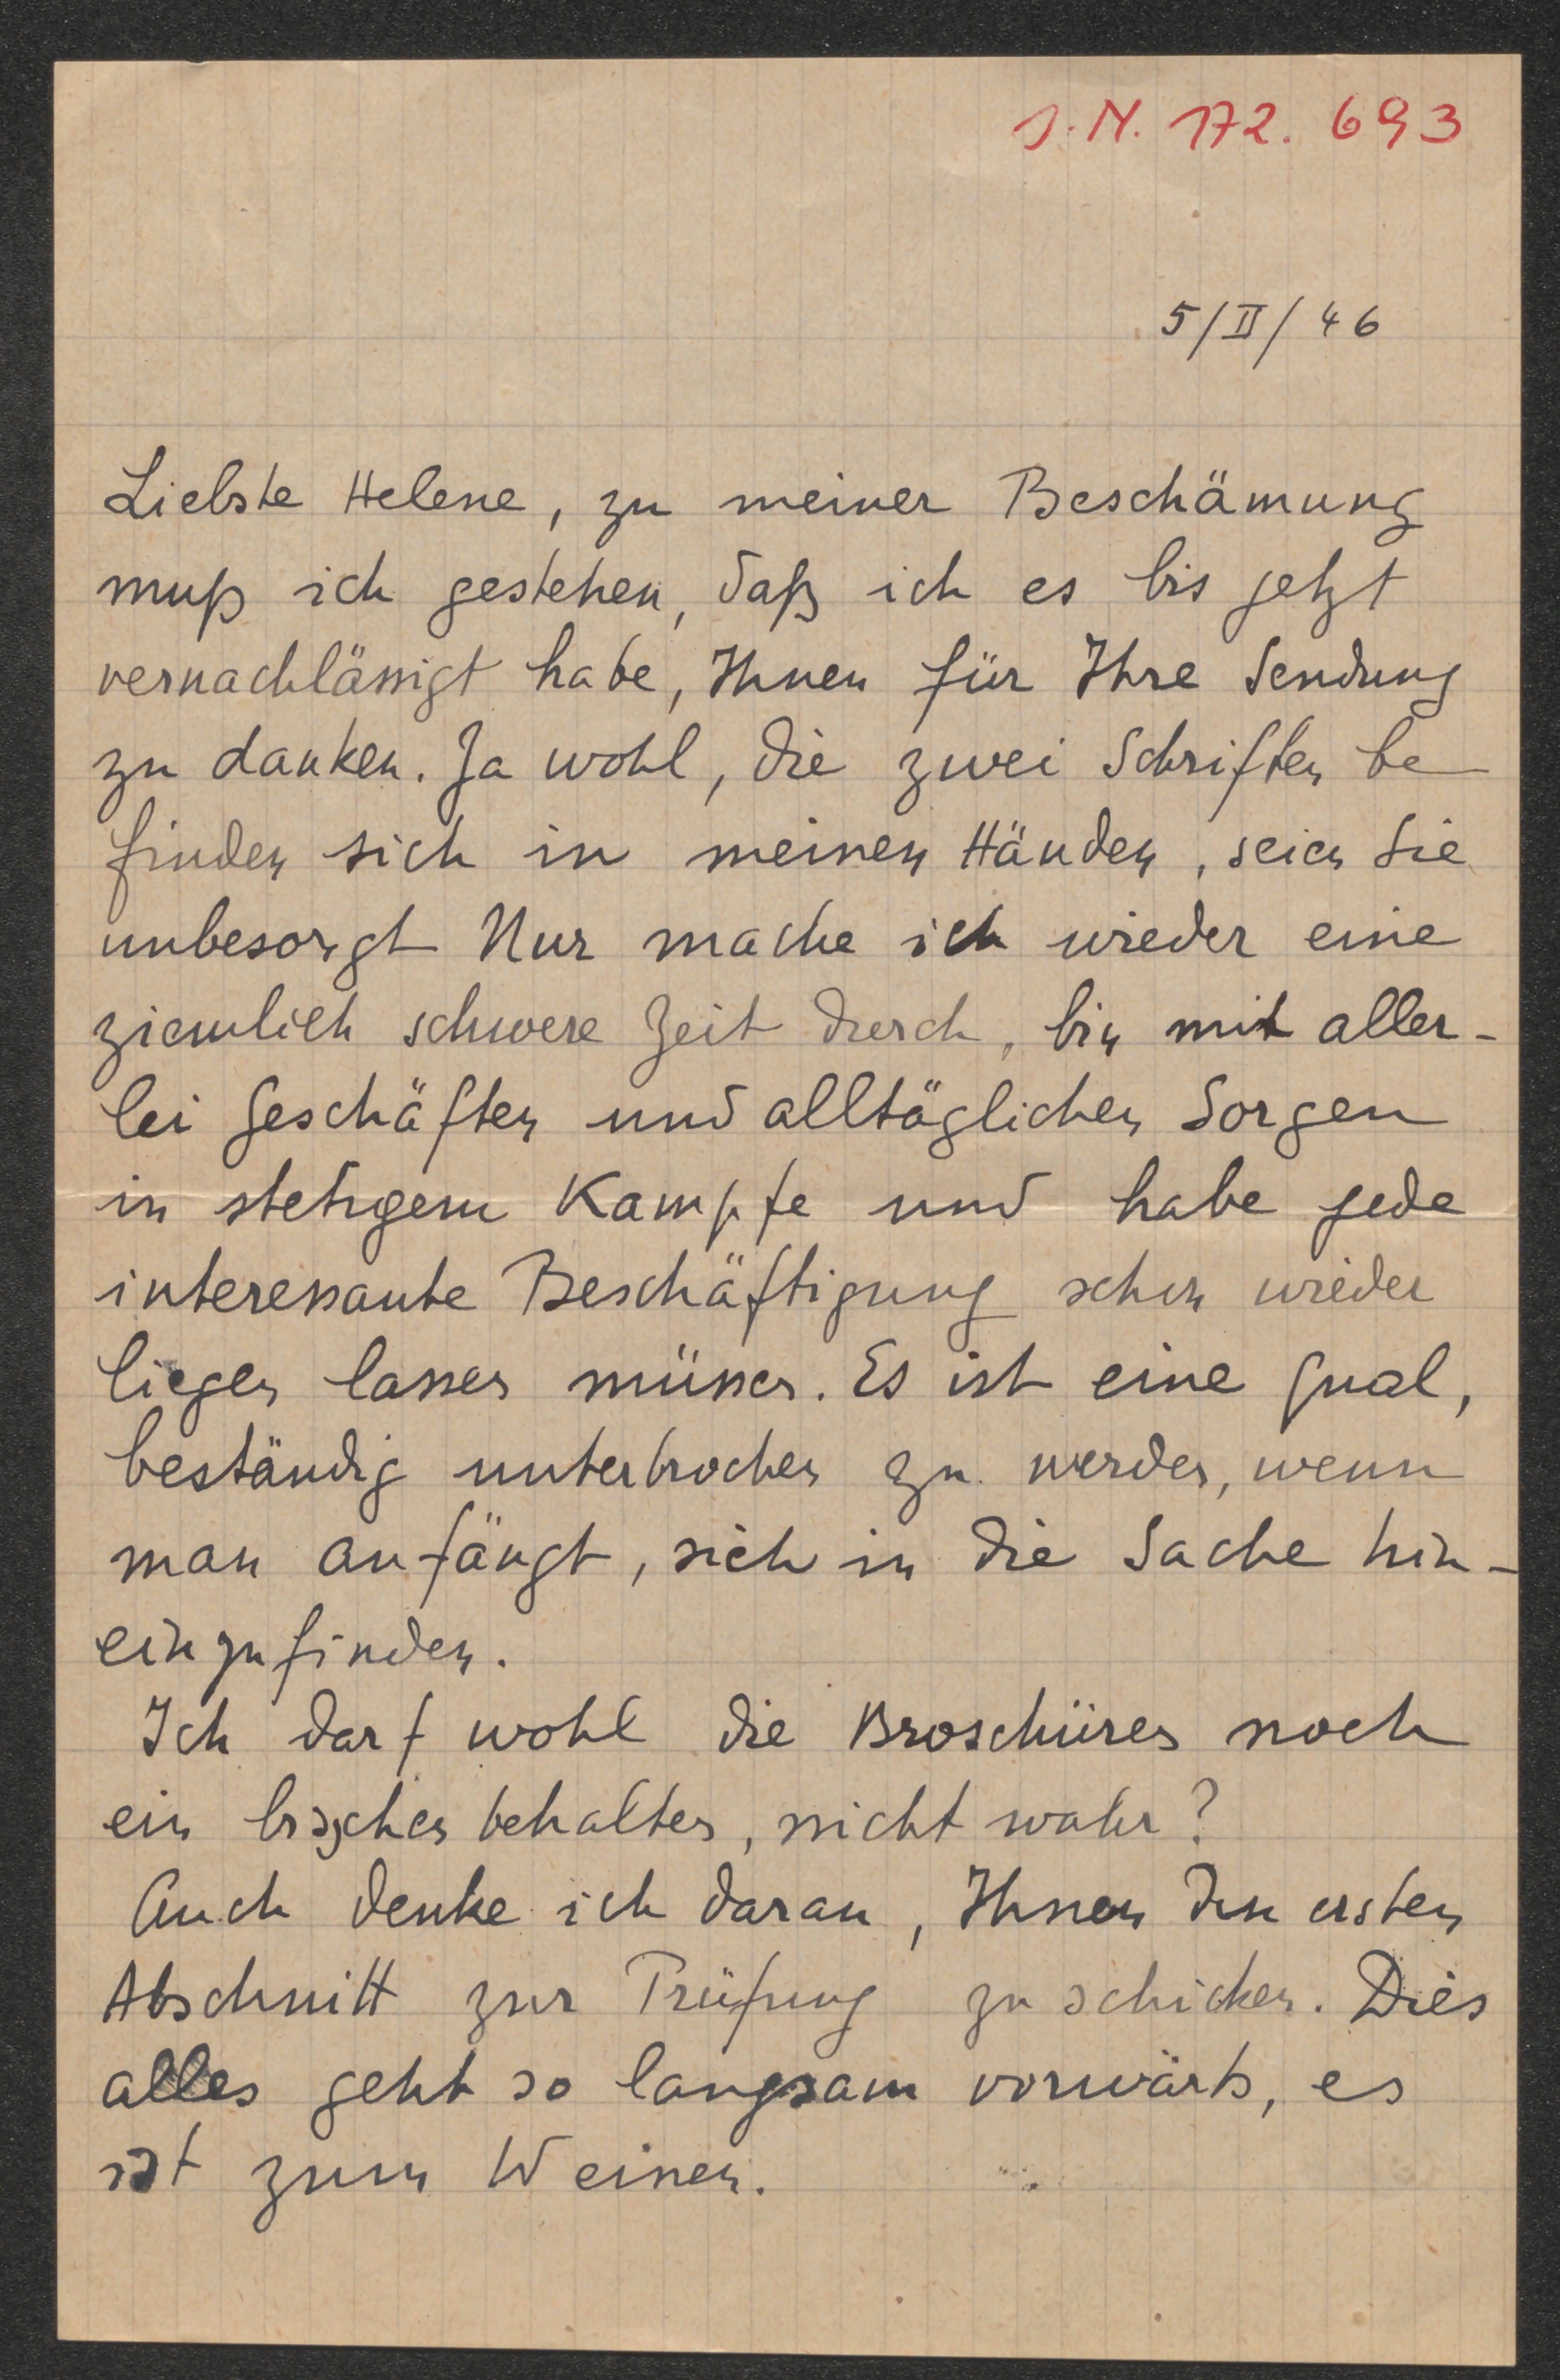 J.N. 172.693
5/II/46
Liebste Helene, zu meiner Beschämung
muß ich gestehen, daß ich es bis jetzt
vernachlässigt habe, Ihnen für Ihre Sendung
zu danken. Ja wohl, die zwei Schriften be
finden sich in meinen Händen, seien Sie
unbesorgt Nur mache ich wieder eine
ziemlich schwere Zeit durch, bin mit aller-
lei Geschäften und alltäglichen Sorgen
in stetigem Kampfe und habe jede
interessante Beschäftigung schon wieder
liegen lassen müssen. Es ist eine Qual,
beständig unterbrochen zu werden, wenn
man anfängt, sich in die Sache hin-
einzufinden.
Ich darf wohl die Broschüren noch
ein bisschen behalten, nicht wahr?
Auch denke ich daran, Ihnen den ersten
Abschnitt zur Prüfung zu schicken. Dies
alles geht so langsam vorwärts, es
ist zum Weinen.